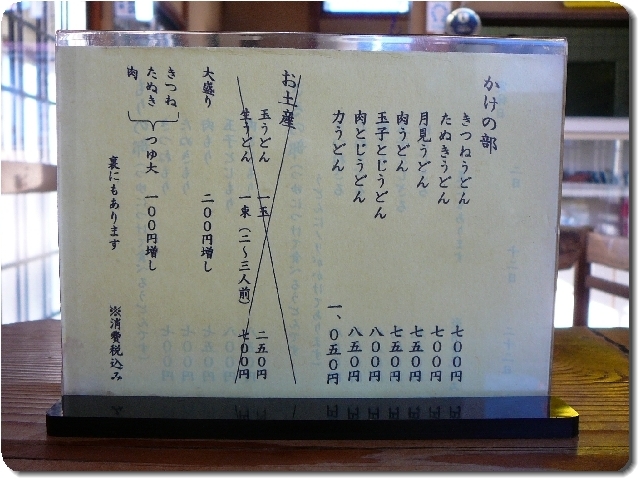 かけの部
きつねうどん 七〇〇円
たぬきうどん 七〇〇円
月見うどん 七五〇円
肉うどん 七五〇円
玉子とじうどん 八〇〇円
肉とじうどん 八五〇円
力うどん 一、〇五〇円
お土産
玉うどん 一玉 二五〇円
生うどん 一束(二～三人前) 七〇〇円
大盛り 二〇〇円増し
きつね
たぬき つゆ大 一〇〇円増し
肉
裏にもあります ※消費税込み